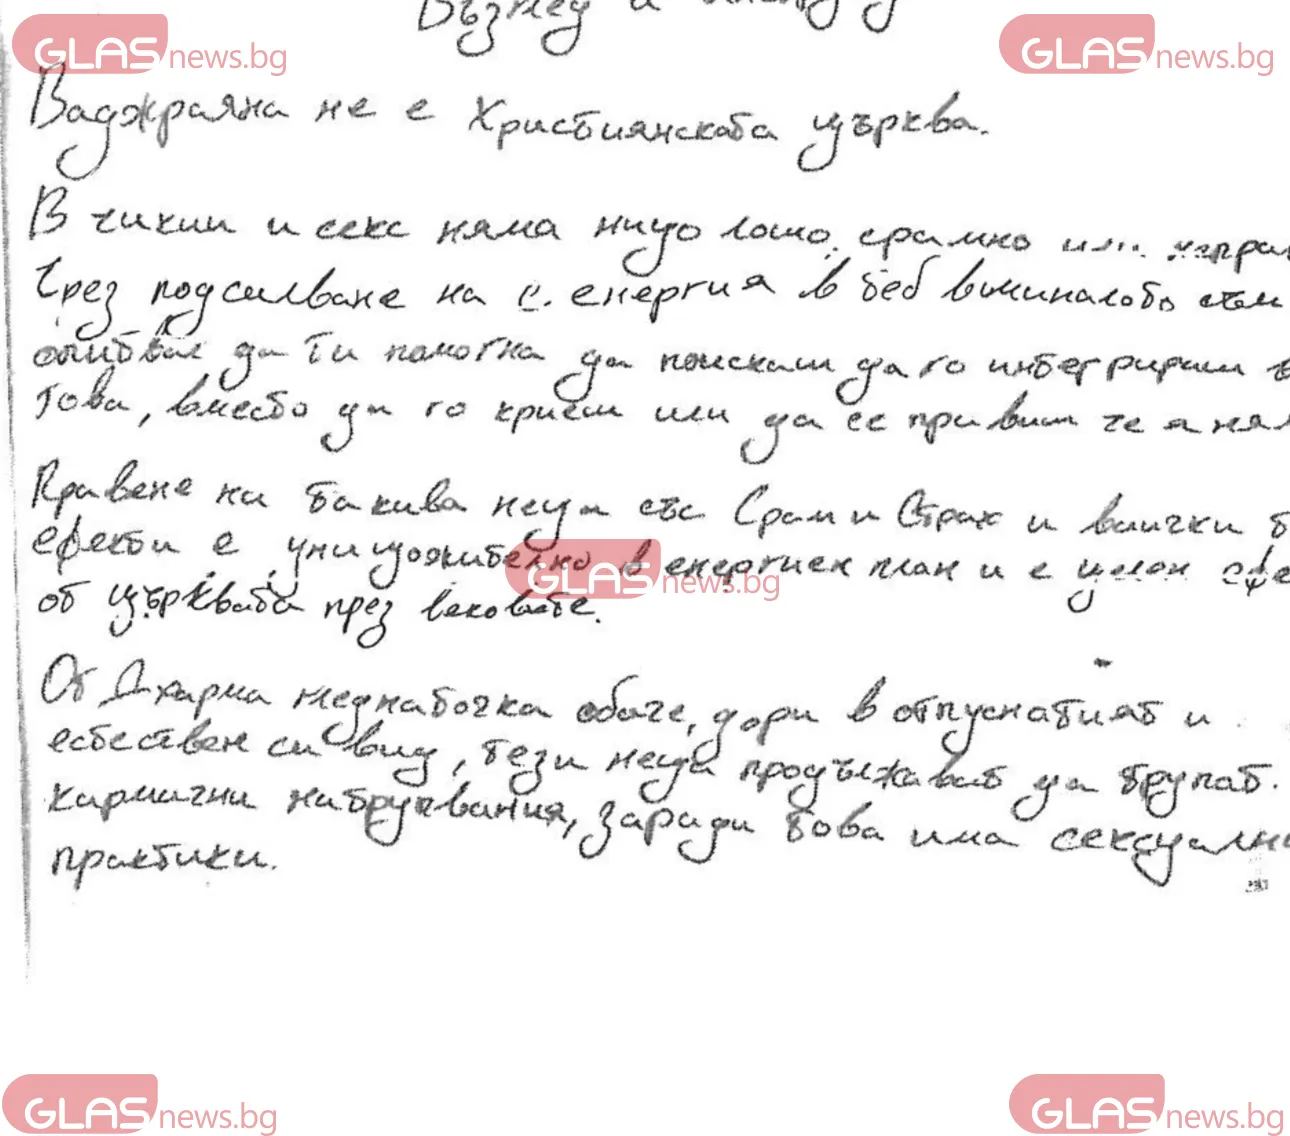 GLASnews.bg
GLASnews.bg
Ваджраяна не е Християнската църква.
В чикии и секс няма нищо лошо, срамно или
Чрез подсилване на с. енергия в теб в миналото съм
опитвал да ти помогна да поискаш да го интегрираш
това, вместо да го криеш или да се правиш че я ням
Правене на такива неща със Срам и Страх и всички
ефекти е унищожително в енергиен план и е целен
от църквата през вековете.
GLASnews.bg
От Дхарма гледна точка обаче, дори в отпуснатият и
естествен си вид, тези неща продължават да трупат
кармични натрупвания, заради това има сексуални
практики.
GLASnews.bg
GLASnews.bg